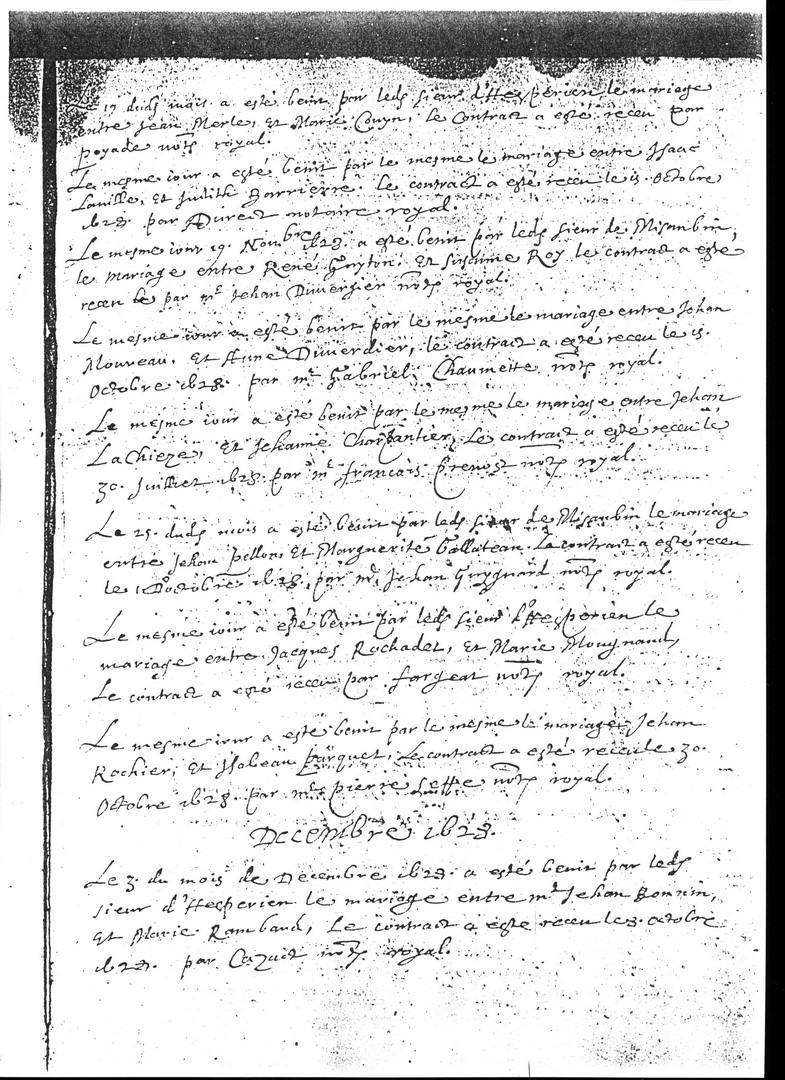 Le 17 dudt mois a esté benit par ledt sieur d'Hesperien le mariage
entre Jean Merle, Et Marie Couyn, le Contract a esté receu par
poyade nore royal.
Le mesme iour a esté benit par le mesme le mariage entre Isaac
Laville, Et Judith Barrierre. le contract a esté receu le 15. octobre
1628. par Durect notaire royal.
Le mesme iour 19. Novbre 1628. a esté benit par ledt sieur de Misaubin,
le mariage entre René Guyton. Et Susanne Roy le contract a esté
receu le par mr Jehan Duvergier nore royal.
Le mesme iour a esté benit par le mesme le mariage entre Jehan
Moureau, Et Anne Duverdier, le contract a esté receu le 15.
Octobre 1628. par mr Gabriel Chaumette nore royal.
Le mesme iour a esté benit par le mesme le mariage entre Jehan
La Chieze, Et Jehanne Charpantier, Le contract a esté receu le
30. Juillet 1628. par mr francois prevost nore royal.
Le 25. dudt mois a esté benit par ledt sieur de Misaubin le mariage
entre Jehan pellon, Et Marguerite Gallateau. Le contract a esté receu
le octobre 1628, par mr Jehan Guygnard nore royal.
Le mesme iour a esté benit par ledt sieur d'Hesperien le
mariage entre Jacques Rochadet, et Marie Mougnaud,
Le contract a esté receu par forgeat nore royal.
Le mesme iour a esté benit par le mesme le mariage Jehan
Rochier, Et Isabeau parquet, Le contract a esté receu le 30.
Octobre 1628. par mre pierre nore royal.
Decembre 1628.
Le 3. du mois de Decembre 1628. a esté benit par ledt
sieur d'Hesperien le mariage entre mr Jehan Bonnin,
Et Marie Rambaud, Le contract a esté receu le 8. octobre
1628. par Cazait nore royal.